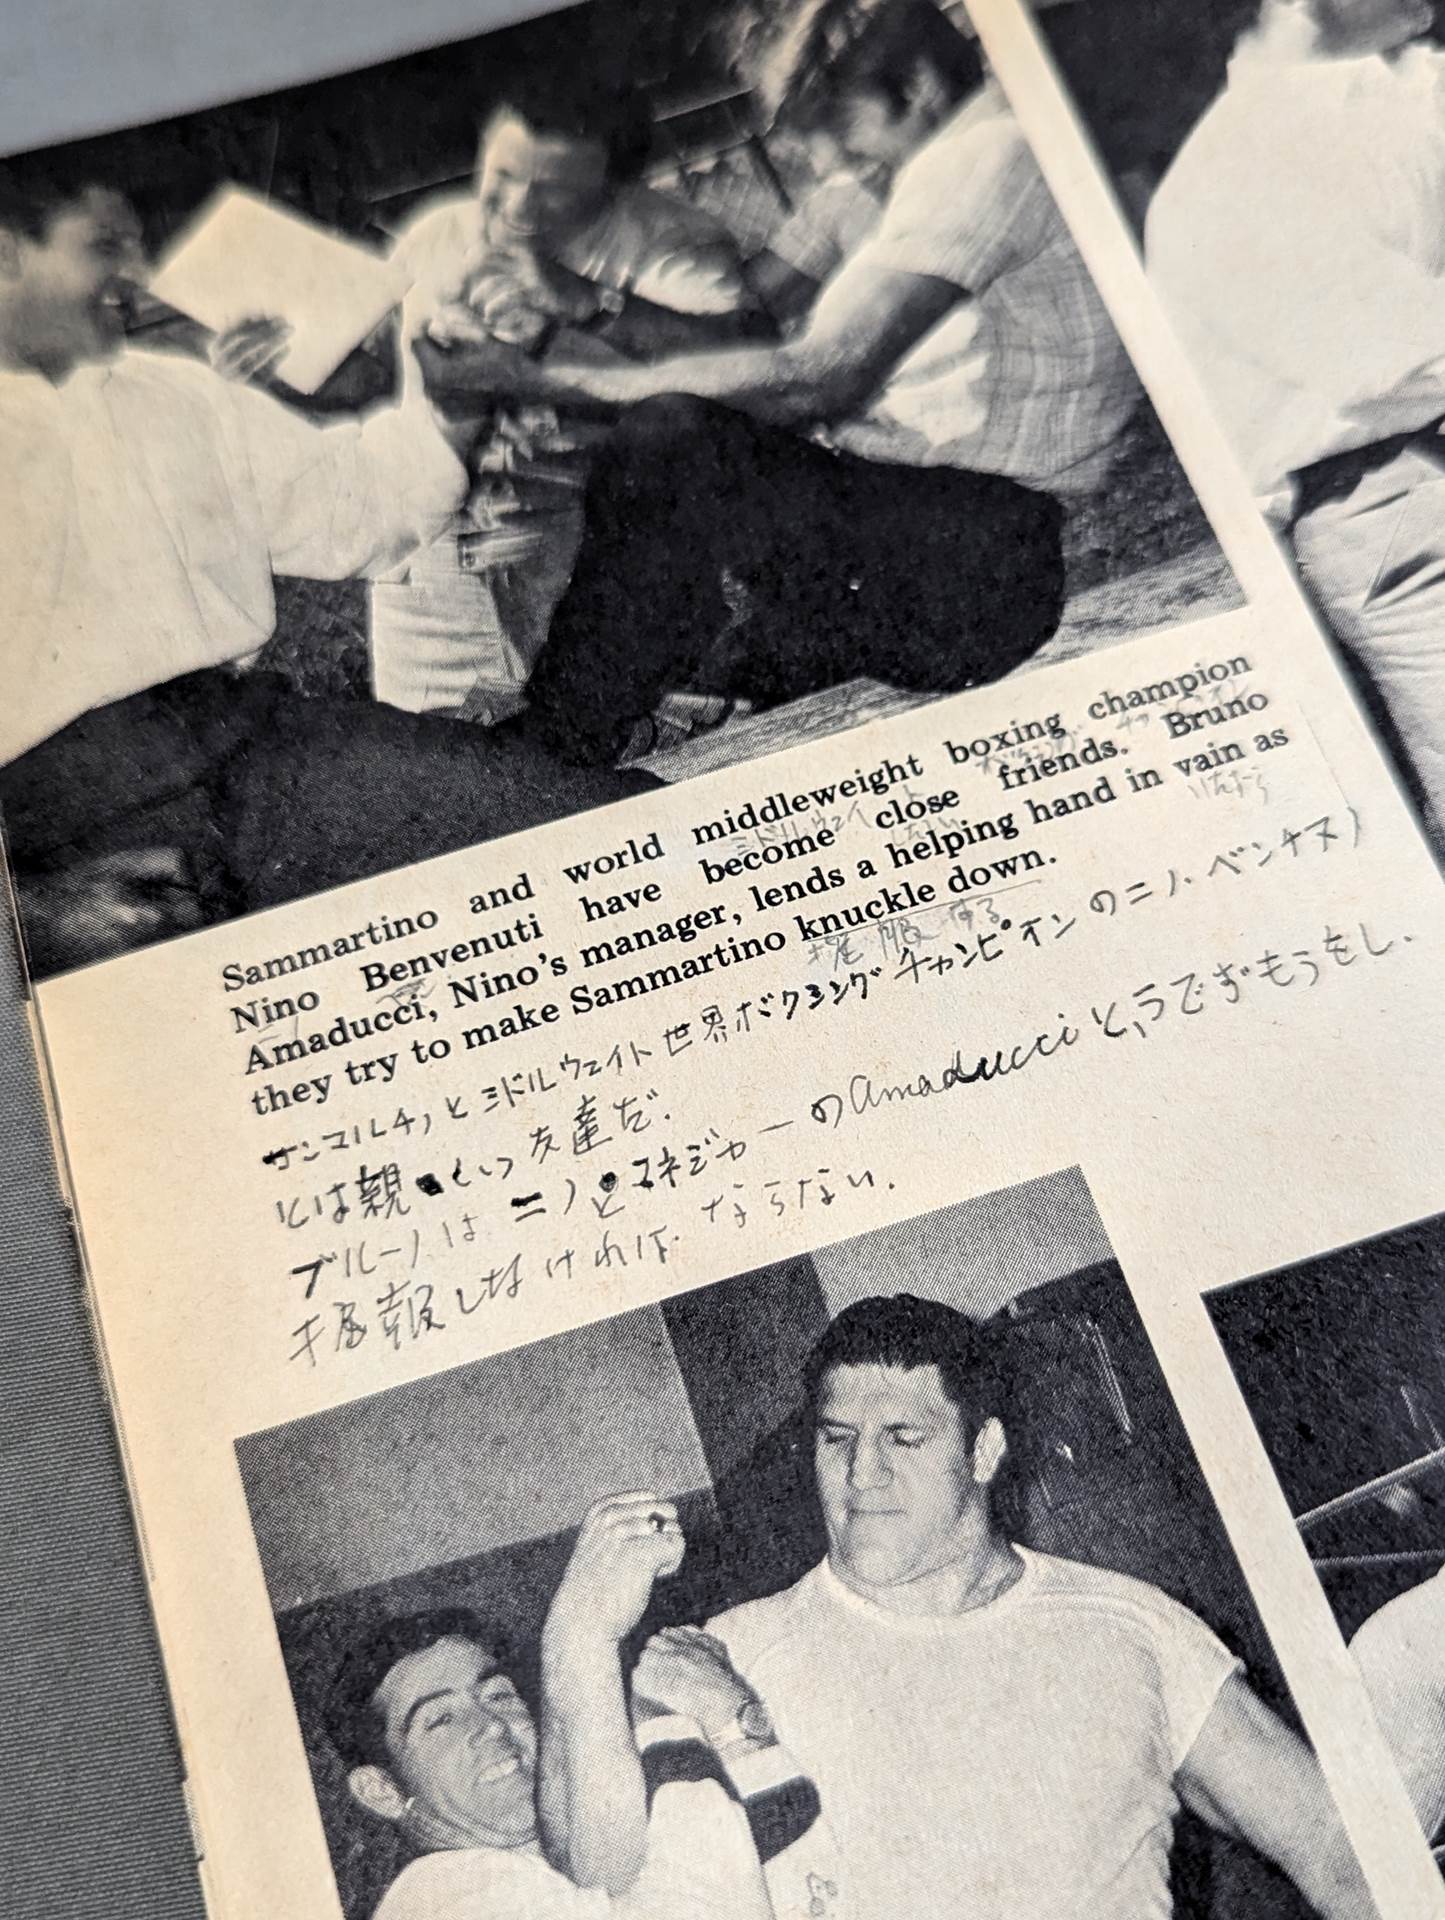 Sammartino and world middleweight boxing champion
Nino Benvenuti have become close friends. Bruno
Amaducci, Nino's manager, lends a helping hand in vain as
they try to make Sammartino knuckle down.
ミドルウェイト
する
サンマルチノとミドルウェイト世界ボクシングチャンピオンのニノ・ベンチヌノ
とは親しい友達だ.
ブルーノはニノとマネジャーのAmaducciと、うでずもうをし.
しなければならない.